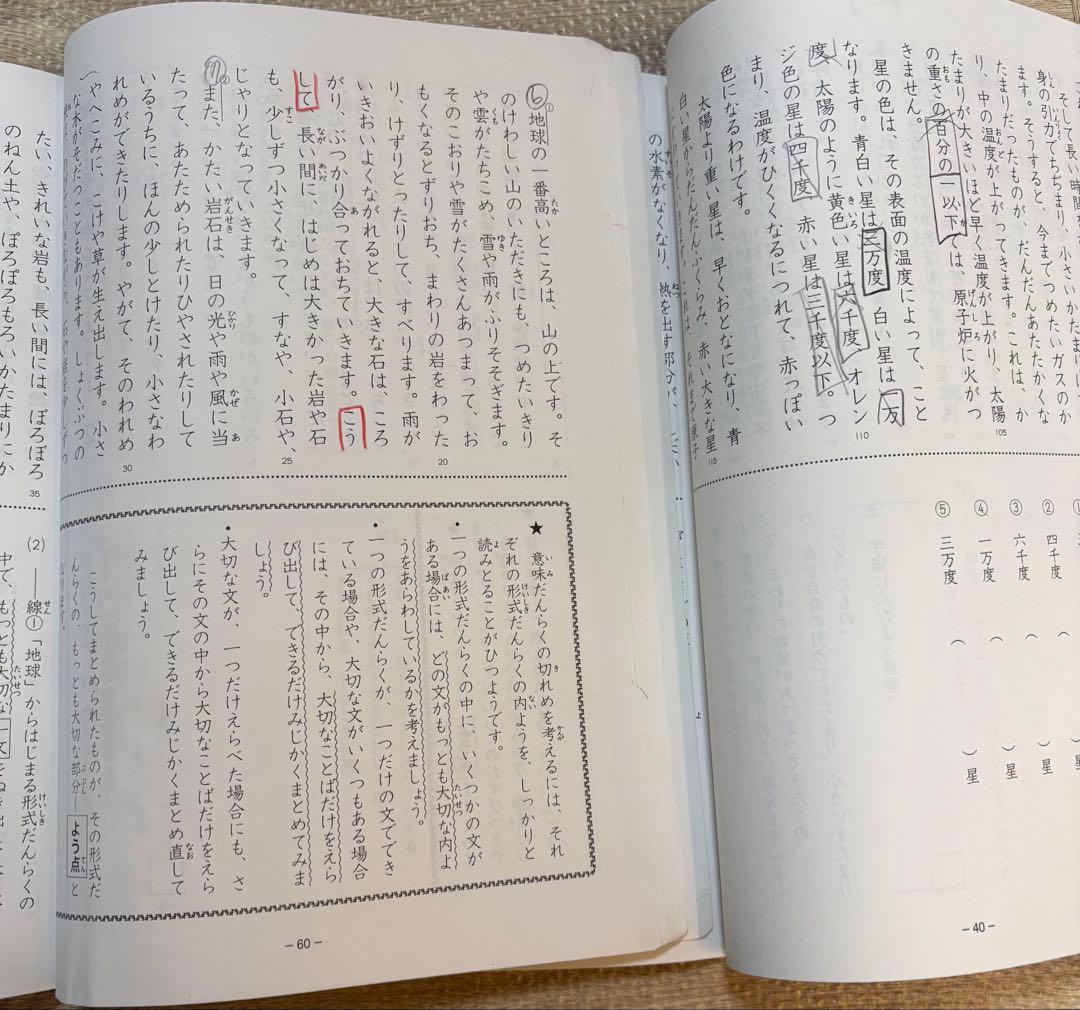 そして長い時間、
身の引力でちぢまり、小さ
ます。そうすると、今までつめたいガスのか
たまりだったものが、だんだんあたたかくな
り、中の温度が上がってきます。これは、か
たまりが大きいほど早く温度が上がり、太陽
の重さの百分の一以下では、原子炉に火がつ
きません。
星の色は、その表面の温度によって、こと
なります。青白い星は三万度、白い星は一万
度、太陽のように黄色い星は六千度、オレン
ジ色の星は四千度、赤い星は三千度以下。つ
まり、温度がひくくなるにつれて、赤っぽい
色になるわけです。
太陽より重い星は、早くおとなになり、青
白い星からだんだんふくらみ、赤い大きな星
105
110
115
②四千度（　）星
③六千度（　）星
④一万度（　）星
⑤三万度（　）星
－40－
の水素がなくなり、熱を出す部分が、
⑥①地球の一番高いところは、山の上です。そ
のけわしい山のいただきにも、つめたいきり
や雲がたちこめ、雪や雨がふりそそぎます。
そのこおりや雪がたくさんあつまって、お
もくなるとずりおち、まわりの岩をわった
り、けずりとったりして、すべります。雨が
いきおいよくながれると、大きな石は、ころ
がり、ぶつかり合っておちていきます。こう
して、長い間に、はじめは大きかった岩や石
も、少しずつ小さくなって、すなや、小石や、
じゃりとなっていきます。
⑦また、かたい岩石は、日の光や雨や風に当
たって、あたためられたりひやされたりして
いるうちに、ほんの少しとけたり、小さなわ
れめができたりします。やがて、そのわれめ
（やへこみに、こけや草が生え出します。小さ
な木がそだつこともあります。しょくぶつの
20
25
30
★意味だんらくの切れめを考えるには、それ
ぞれの形式だんらくの内ようを、しっかりと
読みとることがひつようです。
・一つの形式だんらくの中にいくつかの文が
ある場合には、どの文がもっとも大切な内よ
うをあらわしているかを考えましょう。
・一つの形式だんらくが、一つだけの文ででき
ている場合や、大切な文がいくつもある場合
には、その中から、大切なことばだけをえら
び出して、できるだけみじかくまとめてみま
しょう。
・大切な文が、一つだけえらべた場合にも、さ
らにその文の中から大切なことばだけをえら
び出して、できるだけみじかくまとめ直して
みましょう。
こうしてまとめられたものが、その形式だ
んらくの、もっとも大切な部分――よう点と
なります。
－60－
たい、きれいな岩も、長い間には、ぼろぼろ
のねん土や、ぽろぽろもろいかたまりにか
35
(2)――線①「地球」からはじまる形式だんらくの
中で、もっとも大切な一文をぬき出